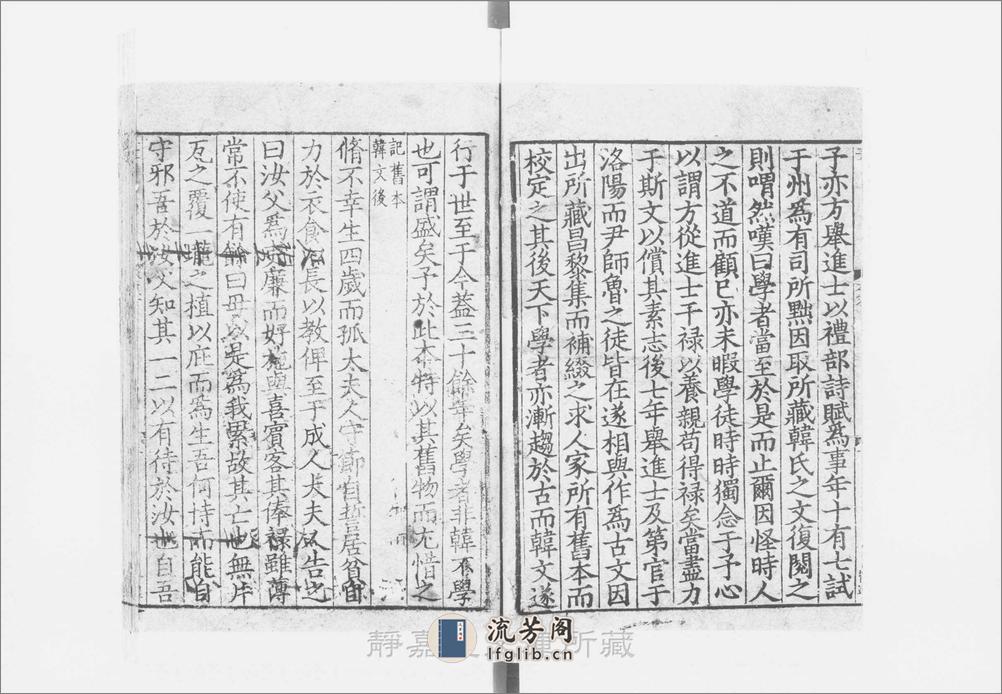 子亦方舉進士以禮部詩賦爲事年十有七試
于州爲有司所黜因取所藏韓氏之文復閱之
則喟然嘆曰學者當至於是而止爾因怪時人
之不道而顧已亦未暇學徒時時獨念于予心
以謂方從進士干禄以養親苟得禄矣當盡力
于斯文以償其素志後七年舉進士及第官于
洛陽而尹師魯之徒皆在遂相與作爲古文因
出所藏昌黎集而補綴之求人家所有舊本而
校定之其後天下學者亦漸趨於古而韓文遂
行于世至于今蓋三十餘年矣學者非韓不學
也可謂盛矣予於此本特以其舊物而尤惜之
記舊本
韓文後
脩不幸生四歲而孤太夫人守節自誓居貧自
力於衣食以長以教俾至于成人太夫人告之
曰汝父爲吏廉而好施與喜賓客其俸禄雖薄
常不使有餘曰毋以是爲我累故其亡也無片
瓦之覆一壠之植以庇而爲生吾何恃而能自
守邪吾於汝父知其一二以有待於汝也自吾
靜嘉堂文庫所藏
流芳阁
lfglib.cn